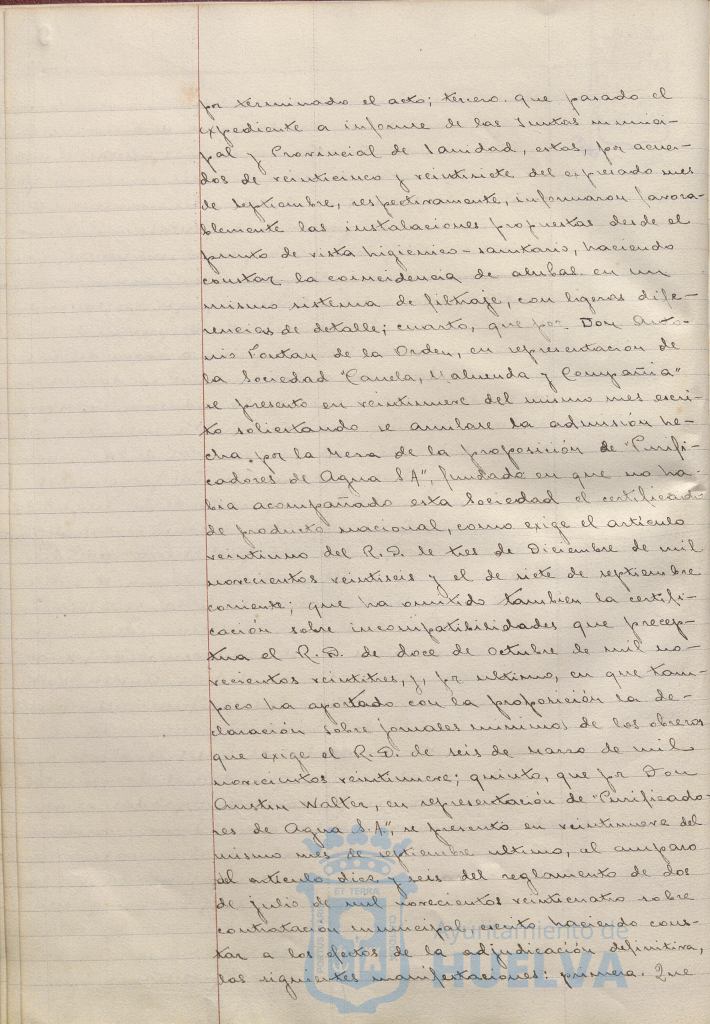 por terminado el acto; tercero. que pasado el
expediente a informe de las Juntas munici-
pal y Provincial de Sanidad, estas, por acuer-
dos de veinticinco y veintisiete del expresado mes
de septiembre, respectivamente, informaron favora-
blemente las instalaciones propuestas desde el
punto de vista higienico-sanitario, haciendo
constar la coincidencia de ambas en un
mismo sistema de filtraje, con ligeras dife-
rencias de detalle; cuarto, que por Don Anto-
nio Fontan de la Orden, en representacion de
la Sociedad "Canela, Maluenda y Compañia"
se presento en veintinueve del mismo mes escri-
to solicitando se anulase la admisión he-
cha por la Mesa de la proposición de "Purifi-
cadores de Agua S.A", fundado en que no ha-
bia acompañado esta Sociedad el certificado
de producto nacional, como exige el articulo
veintiuno del R.D. de tres de Diciembre de mil
novecientos veintiseis y el de siete de septiembre
corriente; que ha omitido tambien la certifi-
cación sobre incompatibilidades que precep-
tua el R.D. de doce de octubre de mil no-
vecientos veintitres, y, por ultimo, en que tam-
poco ha aportado con la proposición la de-
claración sobre jornales minimos de los obreros
que exige el R.D. de seis de Marzo de mil
novecientos veintinueve; quinto, que por Don
Austin Walter, en representación de "Purificado-
res de Agua S.A", se presentó en veintinueve del
mismo mes de septiembre ultimo, al amparo
del articulo diez y seis del reglamento de dos
de julio de mil novecientos veinticuatro sobre
contratación municipal, escrito haciendo cons-
tar a los efectos de la adjudicación definitiva,
las siguientes manifestaciones: primera. Que
ET TERRA
Ayuntamiento de
HUELVA